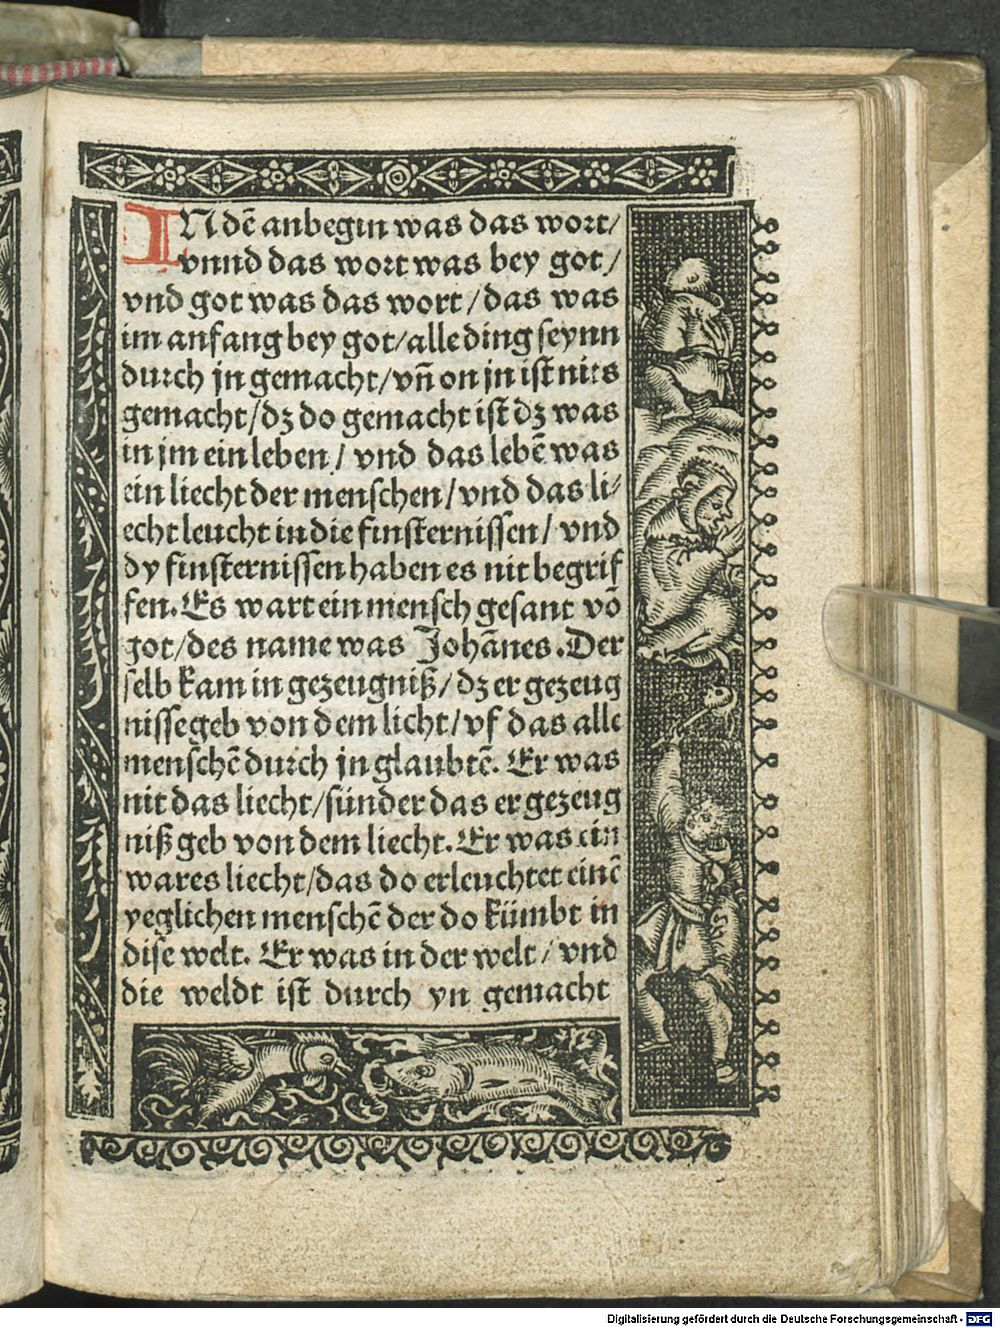 IN dē anbegin was das wort/
vnnd das wort was bey got/
vnd got was das wort/das was
im anfang bey got/alle ding seynn
durch jn gemacht/vn̄ on jn ist nits
gemacht/dz do gemacht ist dz was
in jm ein leben/ vnd das lebē was
ein liecht der menschen/vnd das li⸗
echt leucht in die finsternissen/ vnd
dy finsternissen haben es nit begrif
fen. Es wart ein mensch gesant vō
got/des name was Johānes. Der
selb kam in gezeugniß/dz er gezeug
nisse geb von dem licht/vf das alle
menschē durch jn glaubtē. Er was
nit das liecht/sünder das er gezeug
niß geb von dem liecht. Er was ein
wares liecht/das do erleuchtet einē
yeglichen menschē der do kümbt in
dise welt. Er was in der welt/ vnd
die weldt ist durch yn gemacht
Digitalisierung gefördert durch die Deutsche Forschungsgemeinschaft - DFG